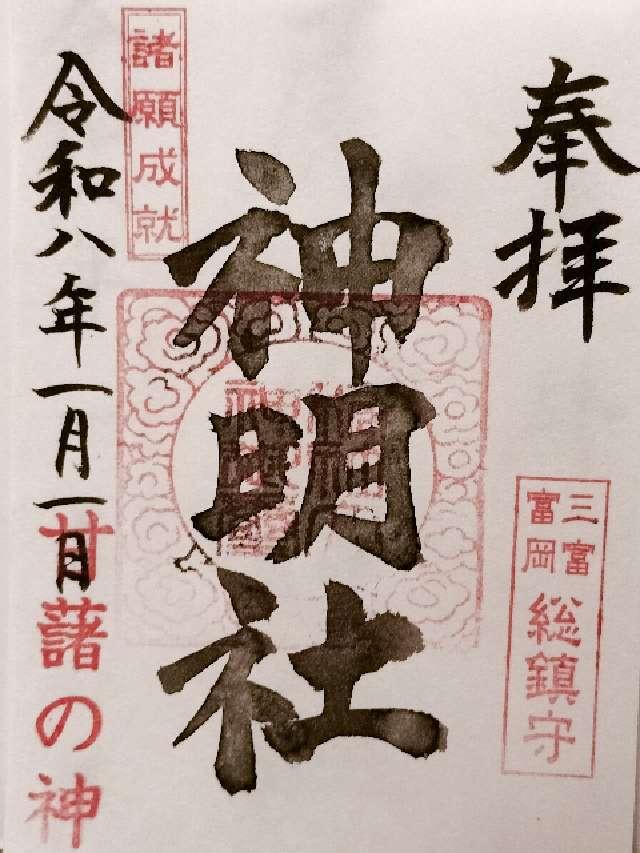 奉拝
三富
富岡
総鎮守
神明社
諸願成就
令和八年一月一日
甘藷の神